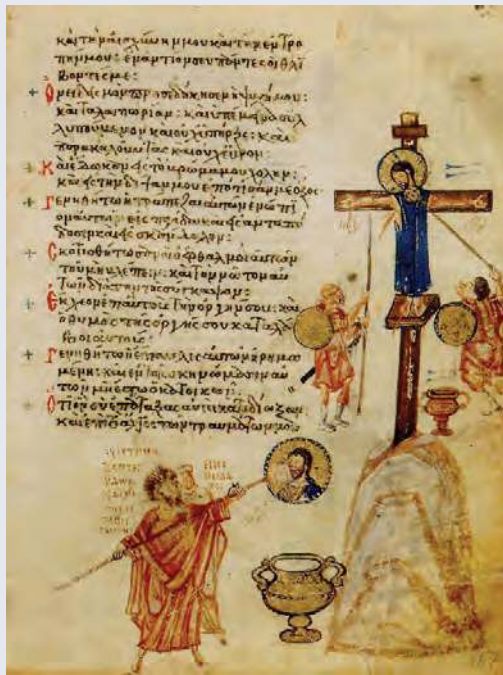 καὶ τὴν αἰσχύνην μου καὶ τὴν ἐντρο
πήν μου: ἐναντίον σου πάντες οἱ θλί
βοντές με:
Ὀνειδισμὸν προσεδόκησεν ἡ ψυχή μου:
καὶ ταλαιπωρίαν: καὶ ὑπέμεινα συλ
λυπούμενον καὶ οὐχ ὑπῆρξε: καὶ
παρακαλοῦντας καὶ οὐχ εὗρον:
Καὶ ἔδωκαν εἰς τὸ βρῶμά μου χολήν:
καὶ εἰς τὴν δίψαν μου ἐπότισάν με ὄξος
Γενηθήτω ἡ τράπεζα αὐτῶν ἐνώπι
ον αὐτῶν εἰς παγίδα καὶ εἰς ἀνταπό
δοσιν καὶ εἰς σκάνδαλον:
Σκοτισθήτωσαν οἱ ὀφθαλμοὶ αὐτῶν
τοῦ μὴ βλέπειν: καὶ τὸν νῶτον αὐ
τῶν διαπαντὸς σύγκαμψον:
Ἔκχεον ἐπ' αὐτοὺς τὴν ὀργήν σου: καὶ
ὁ θυμὸς τῆς ὀργῆς σου καταλά
βοι αὐτούς:
Γενηθήτω ἡ ἔπαυλις αὐτῶν ἠρημω
μένη: καὶ ἐν τοῖς σκηνώμασιν αὐ
τῶν μὴ ἔστω ὁ κατοικῶν:
Ὅτι ὃν σὺ ἐπάταξας αὐτοὶ κατεδίωξαν
καὶ ἐπὶ τὸ ἄλγος τῶν τραυμάτων μου